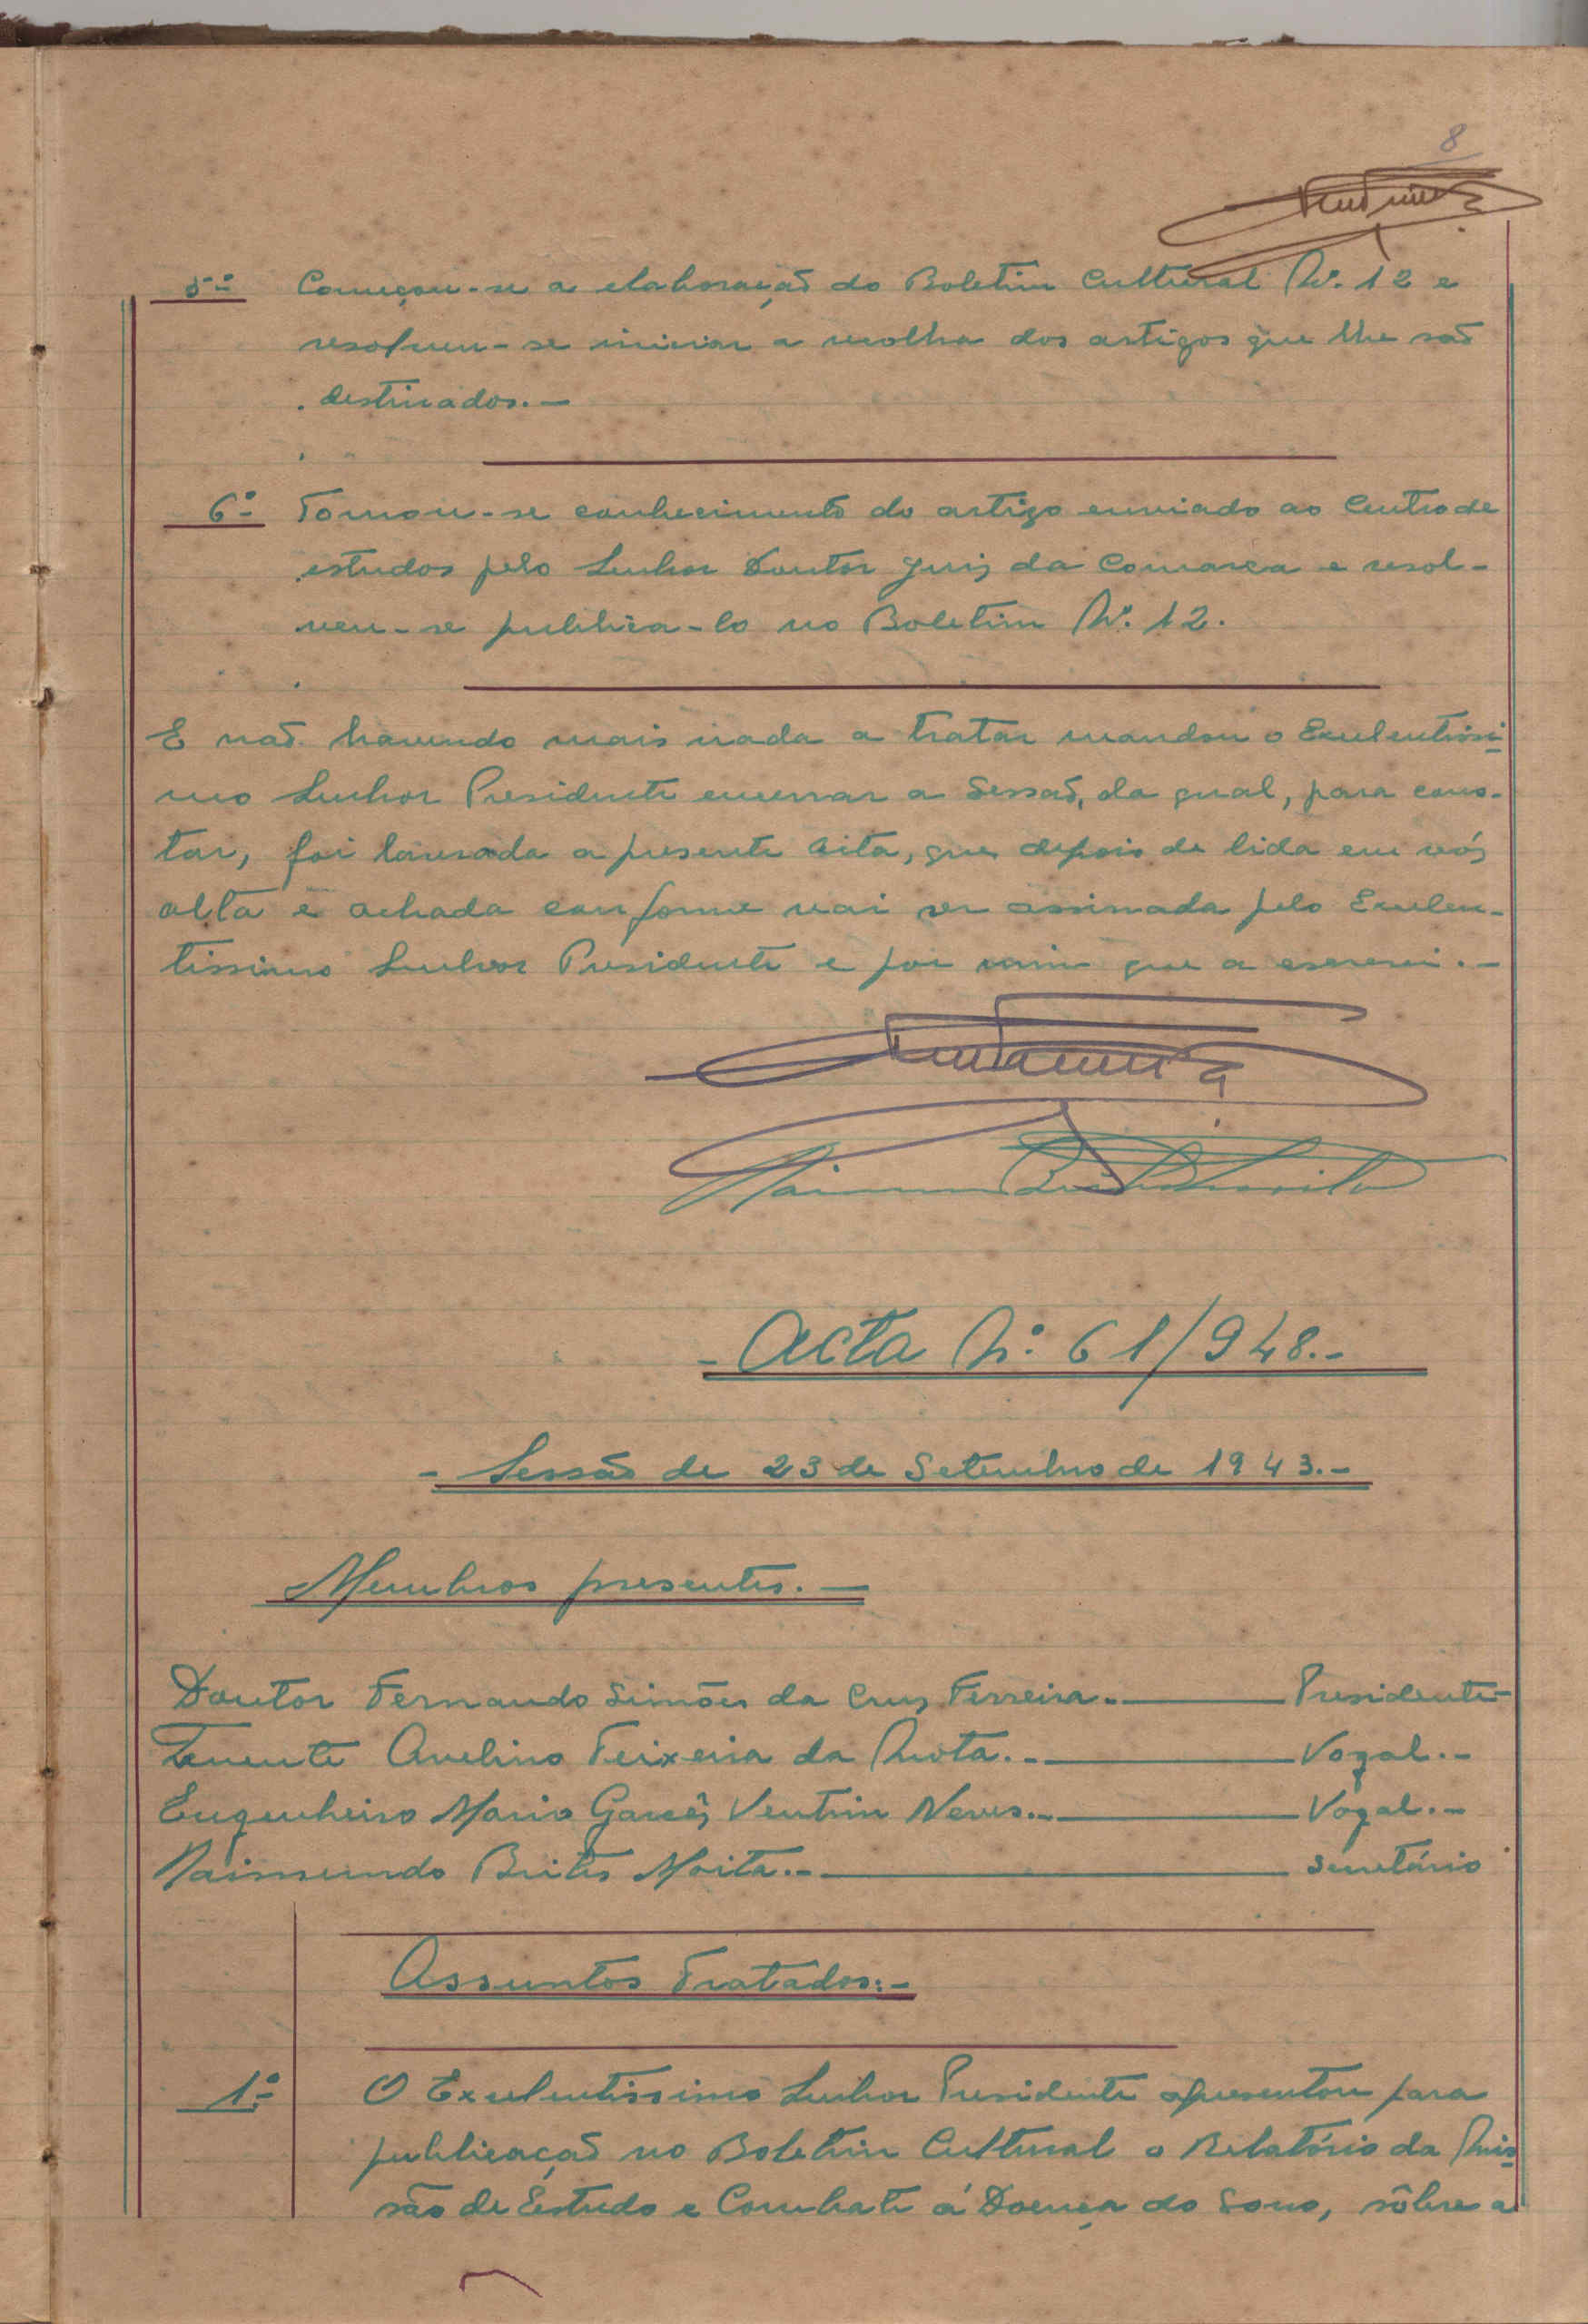 8
5º Começou-se a elaboração do Boletim Cultural Nº. 12 e
resolveu-se iniciar a recolha dos artigos que lhe são
destinados.-
6º Tomou-se conhecimento do artigo enviado ao Centro de
estudos pelo Senhor Doutor Juiz da Comarca e resol-
veu-se publica-lo no Boletim Nº. 12.
E não havendo mais nada a tratar mandou o Excelentissi-
mo Senhor Presidente encerrar a Sessão, da qual, para cons-
tar, foi lavrada a presente acta, que depois de lida em vóz
alta e achada conforme vai ser assinada pelo Excelen-
tissimo Senhor Presidente e por mim que a escrevi.-
-Acta Nº. 61/948.-
-Sessão de 23 de Setembro de 1943.-
Membros presentes.-
Doutor Fernando Simões da Cruz Ferreira.- Presidente-
Tenente Avelino Teixeira da Mota.- Vogal.-
Engenheiro Mario Garcêz Ventrin Neves.- Vogal.-
Raimundo Brites Moita.- Secretário
Assuntos Tratados:-
1º O Excelentissimo Senhor Presidente apresentou para
publicação no Boletim Cultural o Relatório da Mis-
são de Estudo e Combate á Doença do Sono, sôbre a